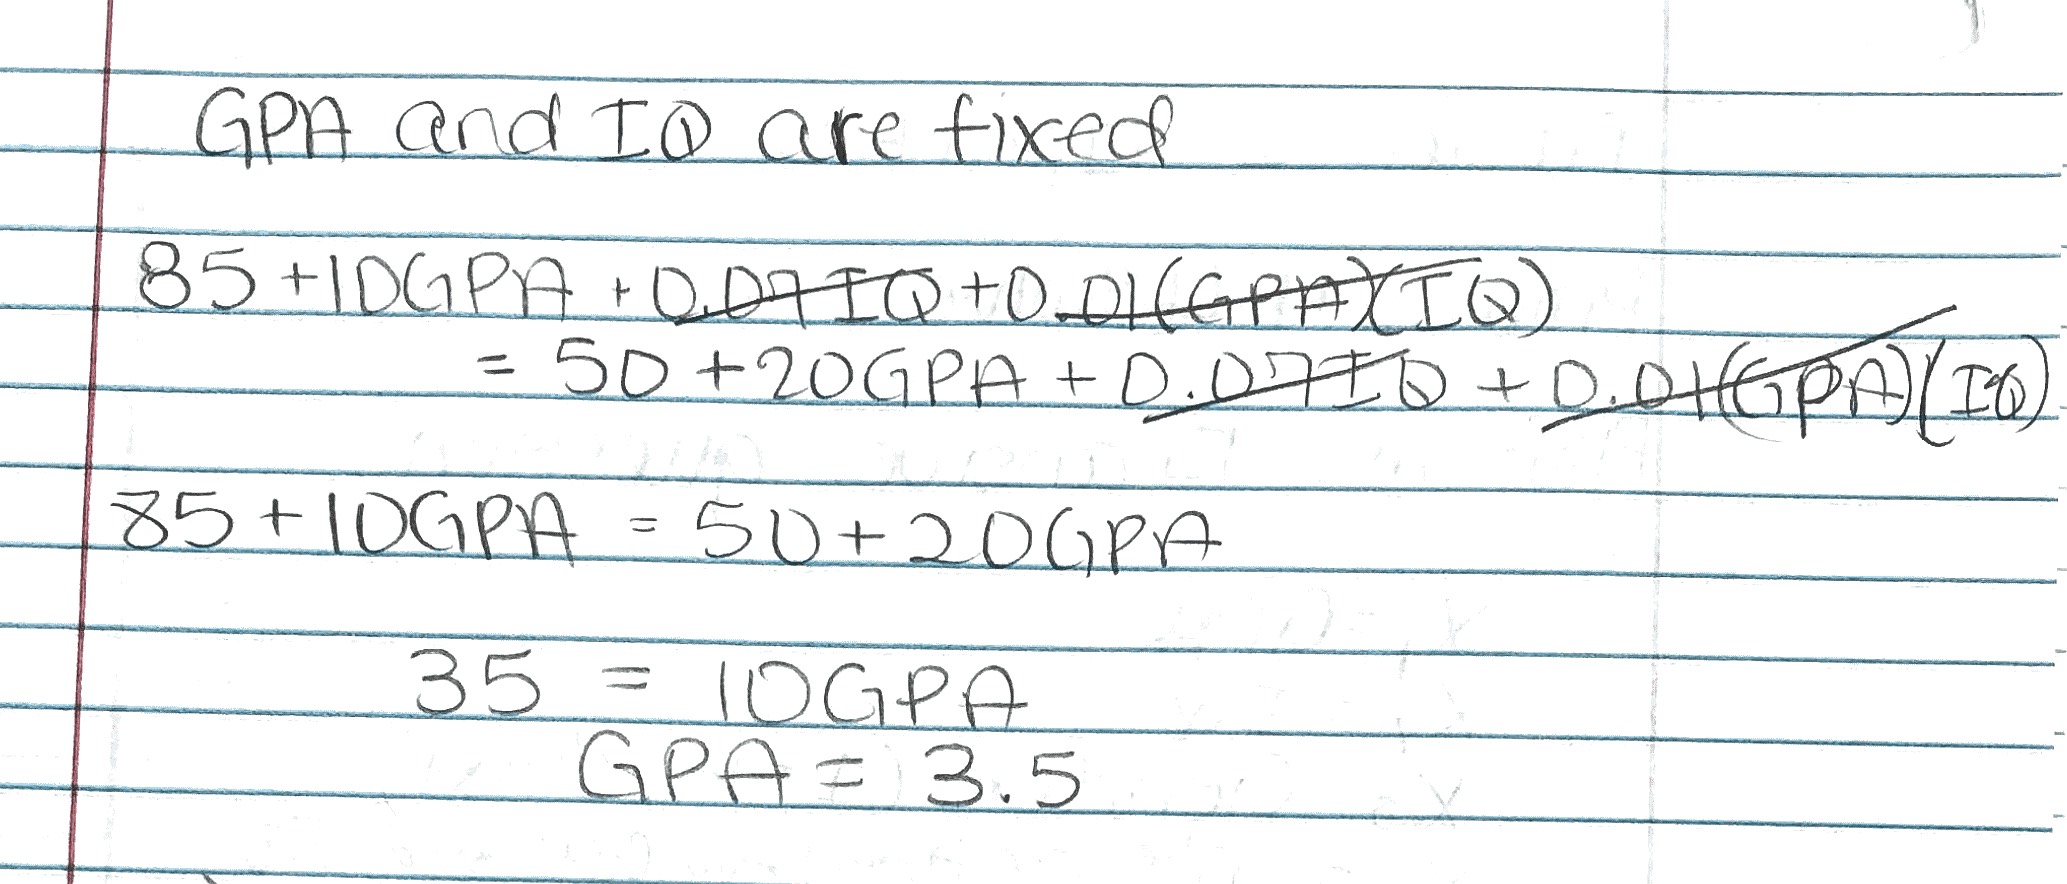 GPA and IQ are fixed
85 + 10GPA + 0.07IQ + 0.01(GPA)(IQ)
= 50 + 20GPA + 0.07IQ + 0.01(GPA)(IQ)
85 + 10GPA = 50 + 20GPA
35 = 10GPA
GPA = 3.5